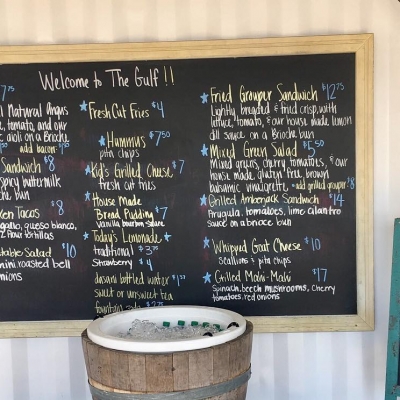 Welcome to The Gulf!!
7.75
l Natural Angus
e, tomato, and our
aioli on a Brioche
add bacon
Sandwich $8
spicy buttermilk
bun
ken Tacos $8
gallo, queso blanco,
flour tortillas
table Salad $10
mini roasted bell
onions
Fresh Cut Fries $4
Hummus $7.50
pita chips
Kid's Grilled Cheese, $7
fresh cut fries
House Made
Bread Pudding $7
vanilla bourbon sauce
Today's Lemonade
traditional $3
Strawberry $4
dasani bottled water
sweet or unsweet tea
fountain soda
Fried Grouper Sandwich $12.75
Lightly breaded & fried crisp, with
lettuce, tomato, & our house made lemon
dill sauce on a Brioche bun
Mixed Green Salad $5.50
Mixed greens, cherry tomatoes, & our
house made gluten free brown
balsamic vinaigrette - add grilled grouper $8
Grilled Amberjack Sandwich $14
Arugula, tomatoes, lime cilantro
sauce on a brioche bun
Whipped Goat Cheese $10
scallions & pita chips
Grilled Mahi-Mahi $17
Spinach, beech mushrooms, cherry
tomatoes, red onions